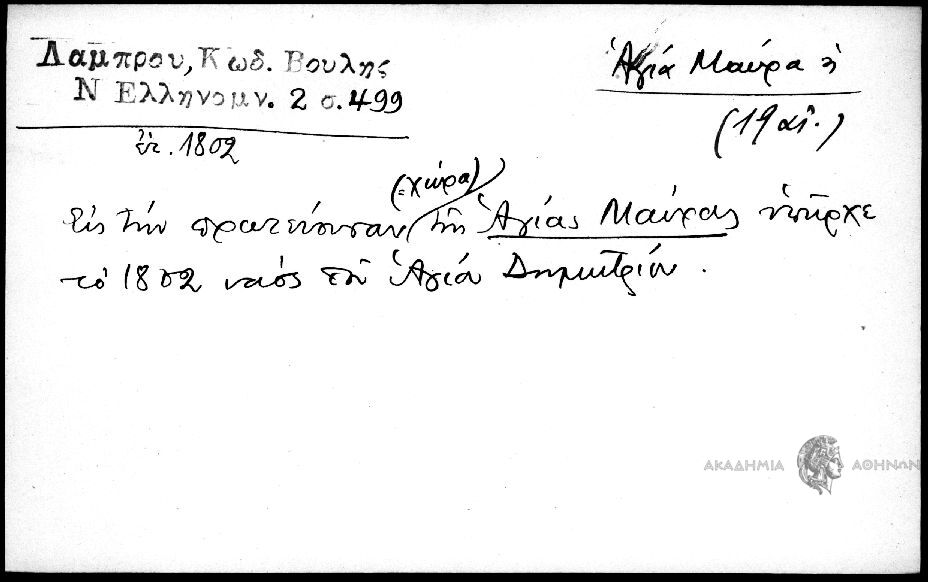 Λαμπρου, Κωδ. Βουλης
Ν Ελληνομν. 2 σ. 499
ἔτ. 1802
Ἁγία Μαύρα ἡ
(19 αἰ.)
(=χώρα)
Εἰς τὴν πρωτεύουσαν τῆς Ἁγίας Μαύρας ὑπῆρχε
τὸ 1802 ναὸς τοῦ Ἁγίου Δημητρίου.
ΑΚΑΔΗΜΙΑ ΑΘΗΝΩΝ